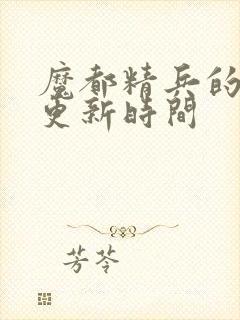 魔都精兵的
更新時間
芳苓